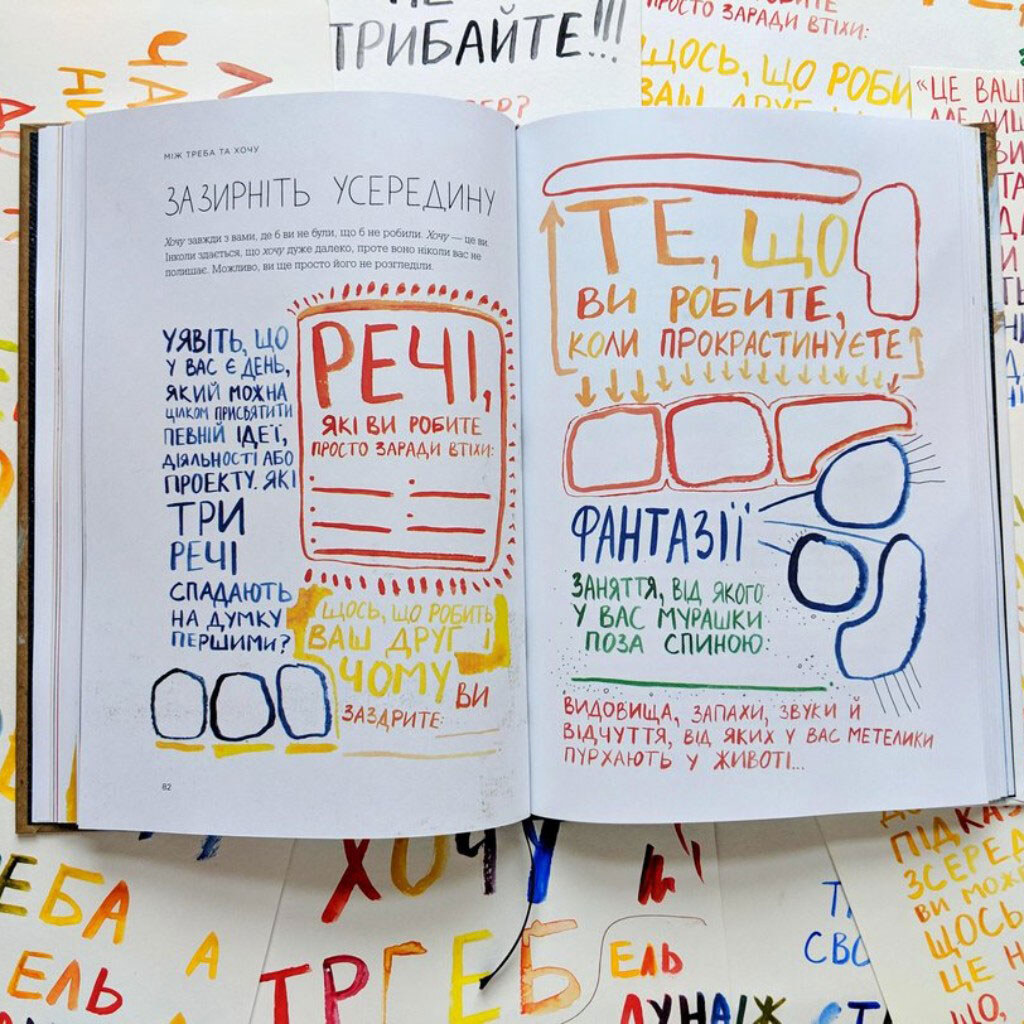 ТРИБАЙТЕ!!!
ПРОСТО ЗАРАДИ ВТІХИ:
ЩОСЬ, ЩО РОБИ
ВАШ ДРУГ І
"ЦЕ ВАШ
МІЖ ТРЕБА ТА ХОЧУ
ЗАЗИРНІТЬ УСЕРЕДИНУ
Хочу завжди з вами, де б ви не були, що б не робили. Хочу — це ви.
Інколи здається, що хочу дуже далеко, проте воно ніколи вас не
полишає. Можливо, ви ще просто його не розгледіли.
УЯВІТЬ, ЩО
У ВАС Є ДЕНЬ,
ЯКИЙ МОЖНА
ЦІЛКОМ ПРИСВЯТИТИ
ПЕВНІЙ ІДЕЇ,
ДІЯЛЬНОСТІ АБО
ПРОЕКТУ. ЯКІ
ТРИ
РЕЧІ
СПАДАЮТЬ
НА ДУМКУ
ПЕРШИМИ?
РЕЧІ,
ЯКІ ВИ РОБИТЕ
ПРОСТО ЗАРАДИ ВТІХИ:
ЩОСЬ, ЩО РОБИТЬ
ВАШ ДРУГ І
ЧОМУ ВИ
ЗАЗДРИТЕ:
62
ТЕ, ЩО
ВИ РОБИТЕ,
КОЛИ ПРОКРАСТИНУЄТЕ
ФАНТАЗІЇ
ЗАНЯТТЯ, ВІД ЯКОГО
У ВАС МУРАШКИ
ПОЗА СПИНОЮ:
ВИДОВИЩА, ЗАПАХИ, ЗВУКИ Й
ВІДЧУТТЯ, ВІД ЯКИХ У ВАС МЕТЕЛИКИ
ПУРХАЮТЬ У ЖИВОТІ...
ХОЧУ
ЕБА
А
ЕЛЬ
ТРЕБ
ЕЛЬ
СВО
ПІДКАЗ
ЗСЕРЕД
ВИ МОЖ
ЩОСЬ
ЦЕ Н
ЩО,